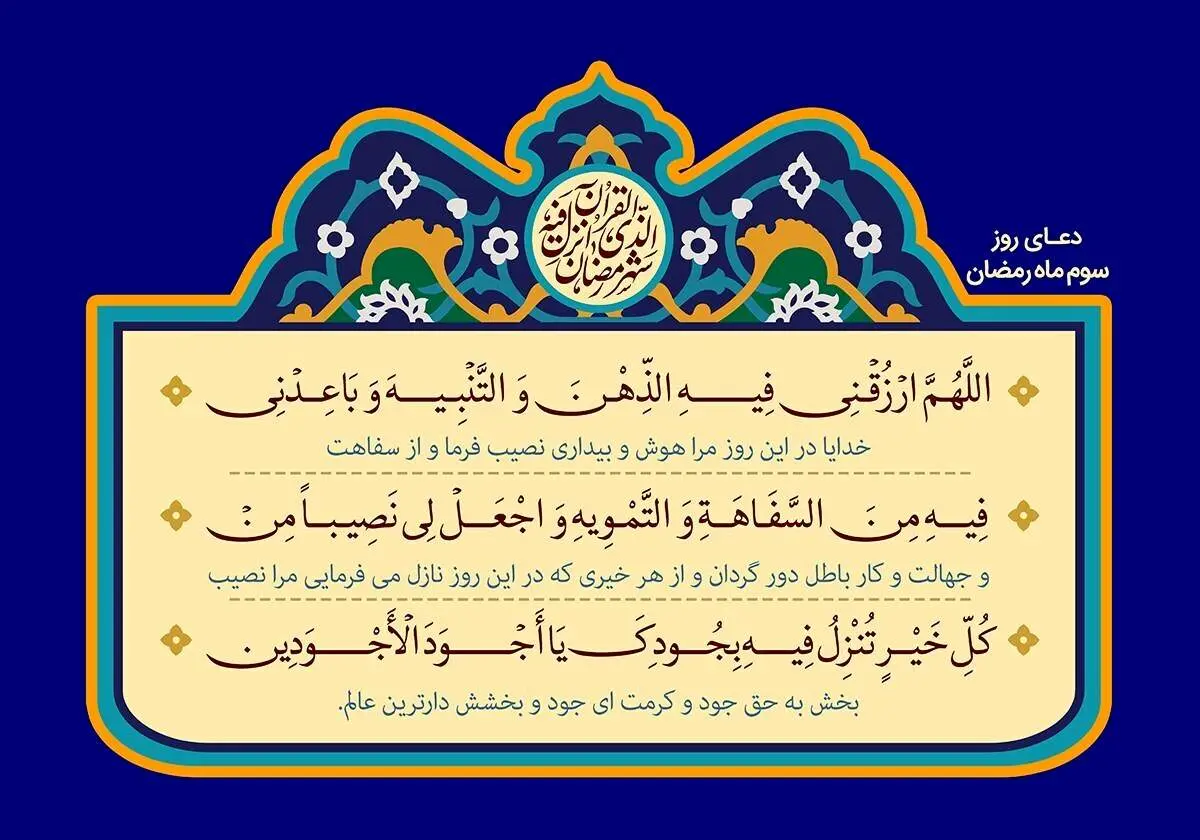 شهر رمضان الذی انزل فیه القرآن
دعـای روز
سوم ماه رمضان
اللَّهُمَّ ارْزُقْنِی فِیهِ الذِّهْنَ وَ التَّنْبِیهَ وَ بَاعِدْنِی
خدایا در این روز مرا هوش و بیداری نصیب فرما و از سفاهت
فِیهِ مِنَ السَّفَاهَةِ وَ التَّمْوِیهِ وَ اجْعَلْ لِی نَصِیباً مِنْ
و جهالت و کار باطل دور گردان و از هر خیری که در این روز نازل می فرمایی مرا نصیب
كُلِّ خَیْرٍ تُنْزِلُ فِیهِ بِجُودِکَ یَا أَجْوَدَ الْأَجْوَدِینَ
بخش به حق جود و کرمت ای جود و بخشش دارترین عالم.